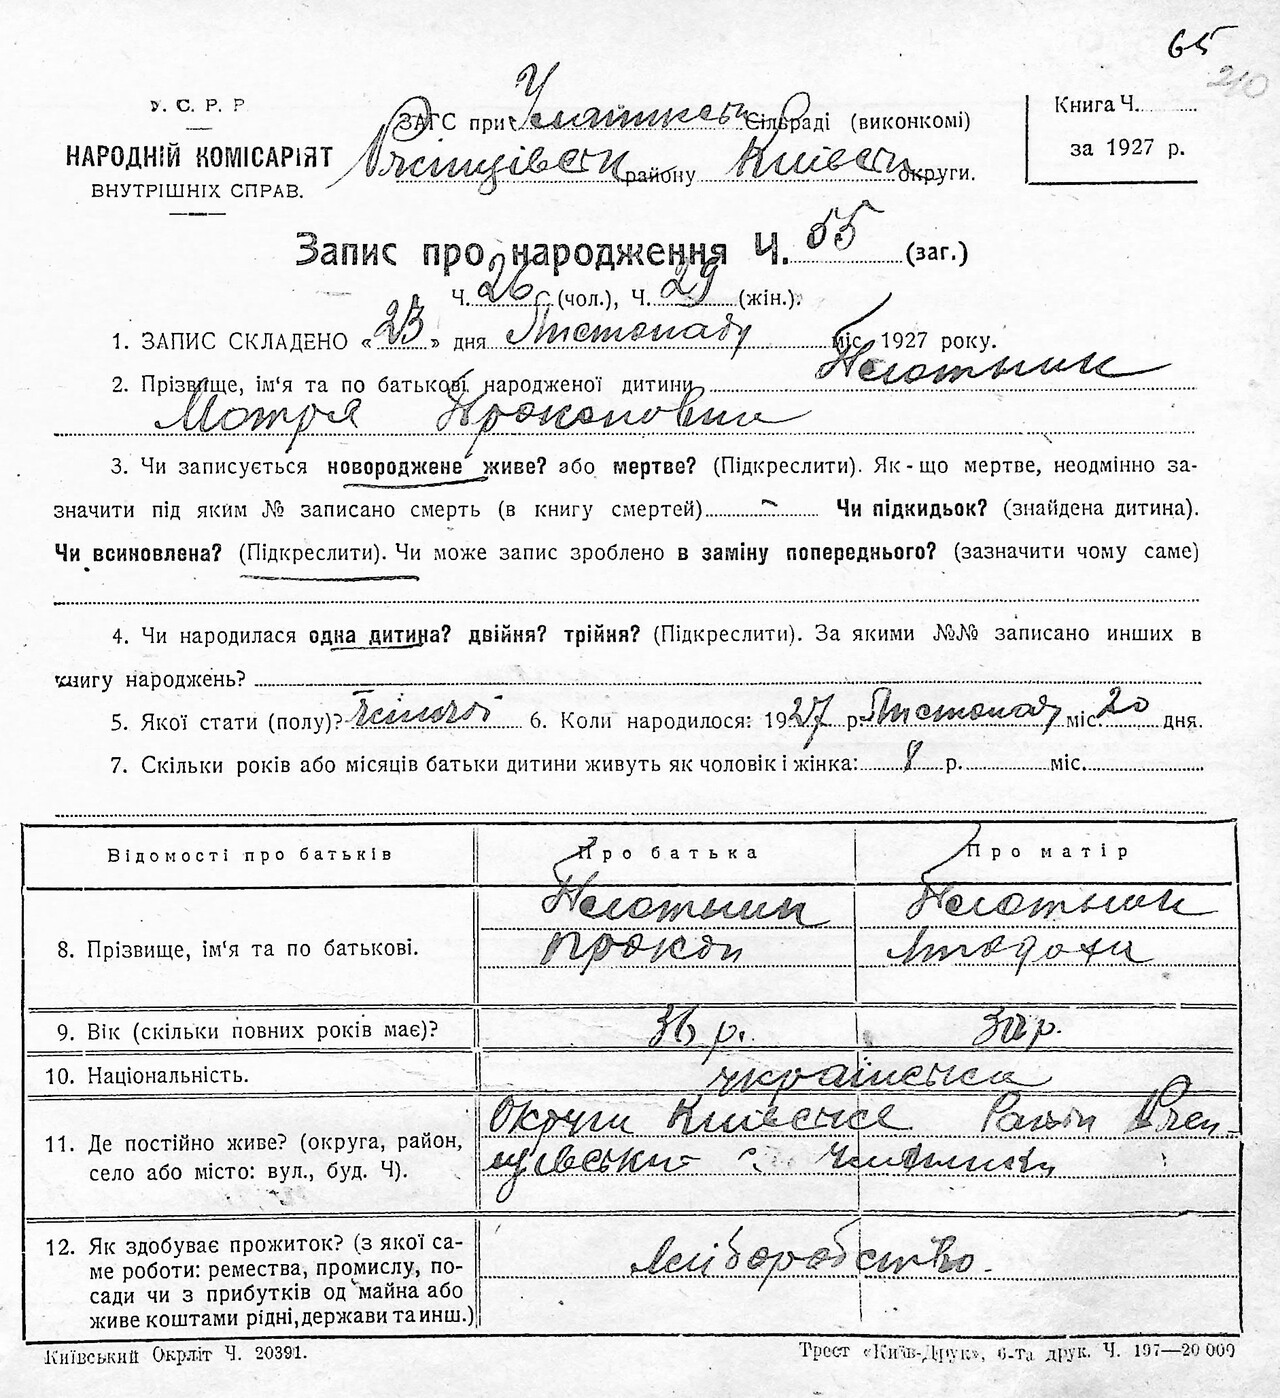 65
210
У. С. Р. Р.
НАРОДНІЙ КОМІСАРІЯТ
ВНУТРІШНІХ СПРАВ.
ЗАГС при Сільраді (виконкомі)
району Київськ округи.
Книга Ч.
за 1927 р.
Запис про народження Ч. 55 (заг.)
Ч. 26 (чол.), Ч. 29 (жін.).
1. ЗАПИС СКЛАДЕНО « 23 » дня Листопаду міс. 1927 року.
2. Прізвище, ім'я та по батькові народженої дитини
Мотря Прокоповна
3. Чи записується новороджене живе? або мертве? (Підкреслити). Як-що мертве, неодмінно за-
значити під яким № записано смерть (в книгу смертей) - Чи підкидьок? (знайдена дитина).
Чи всиновлена? (Підкреслити). Чи може запис зроблено в заміну попереднього? (зазначити чому саме)
4. Чи народилася одна дитина? двійня? трійня? (Підкреслити). За якими №№ записано инших в
книгу народжень?
5. Якої стати (полу)? жіночої 6. Коли народилося: 1927 р. Листопаду міс. 20 дня.
7. Скільки років або місяців батьки дитини живуть як чоловік і жінка: 8 р. міс.
Відомості про батьків Про батька Про матір
8. Прізвище, ім'я та по батькові.
Прокоп
9. Вік (скільки повних років має)? 36 р. р.
10. Національність. українська
11. Де постійно живе? (округа, район,
село або місто: вул., буд. Ч).
Округи Київське Район
12. Як здобуває прожиток? (з якої са-
ме роботи: ремества, промислу, по-
сади чи з прибутків од майна або
живе коштами рідні, держави та инш.)
хліборобство.
Київський Окрліт Ч. 20391.
Трест «Київ-Друк», 6-та друк. Ч. 197—20 000